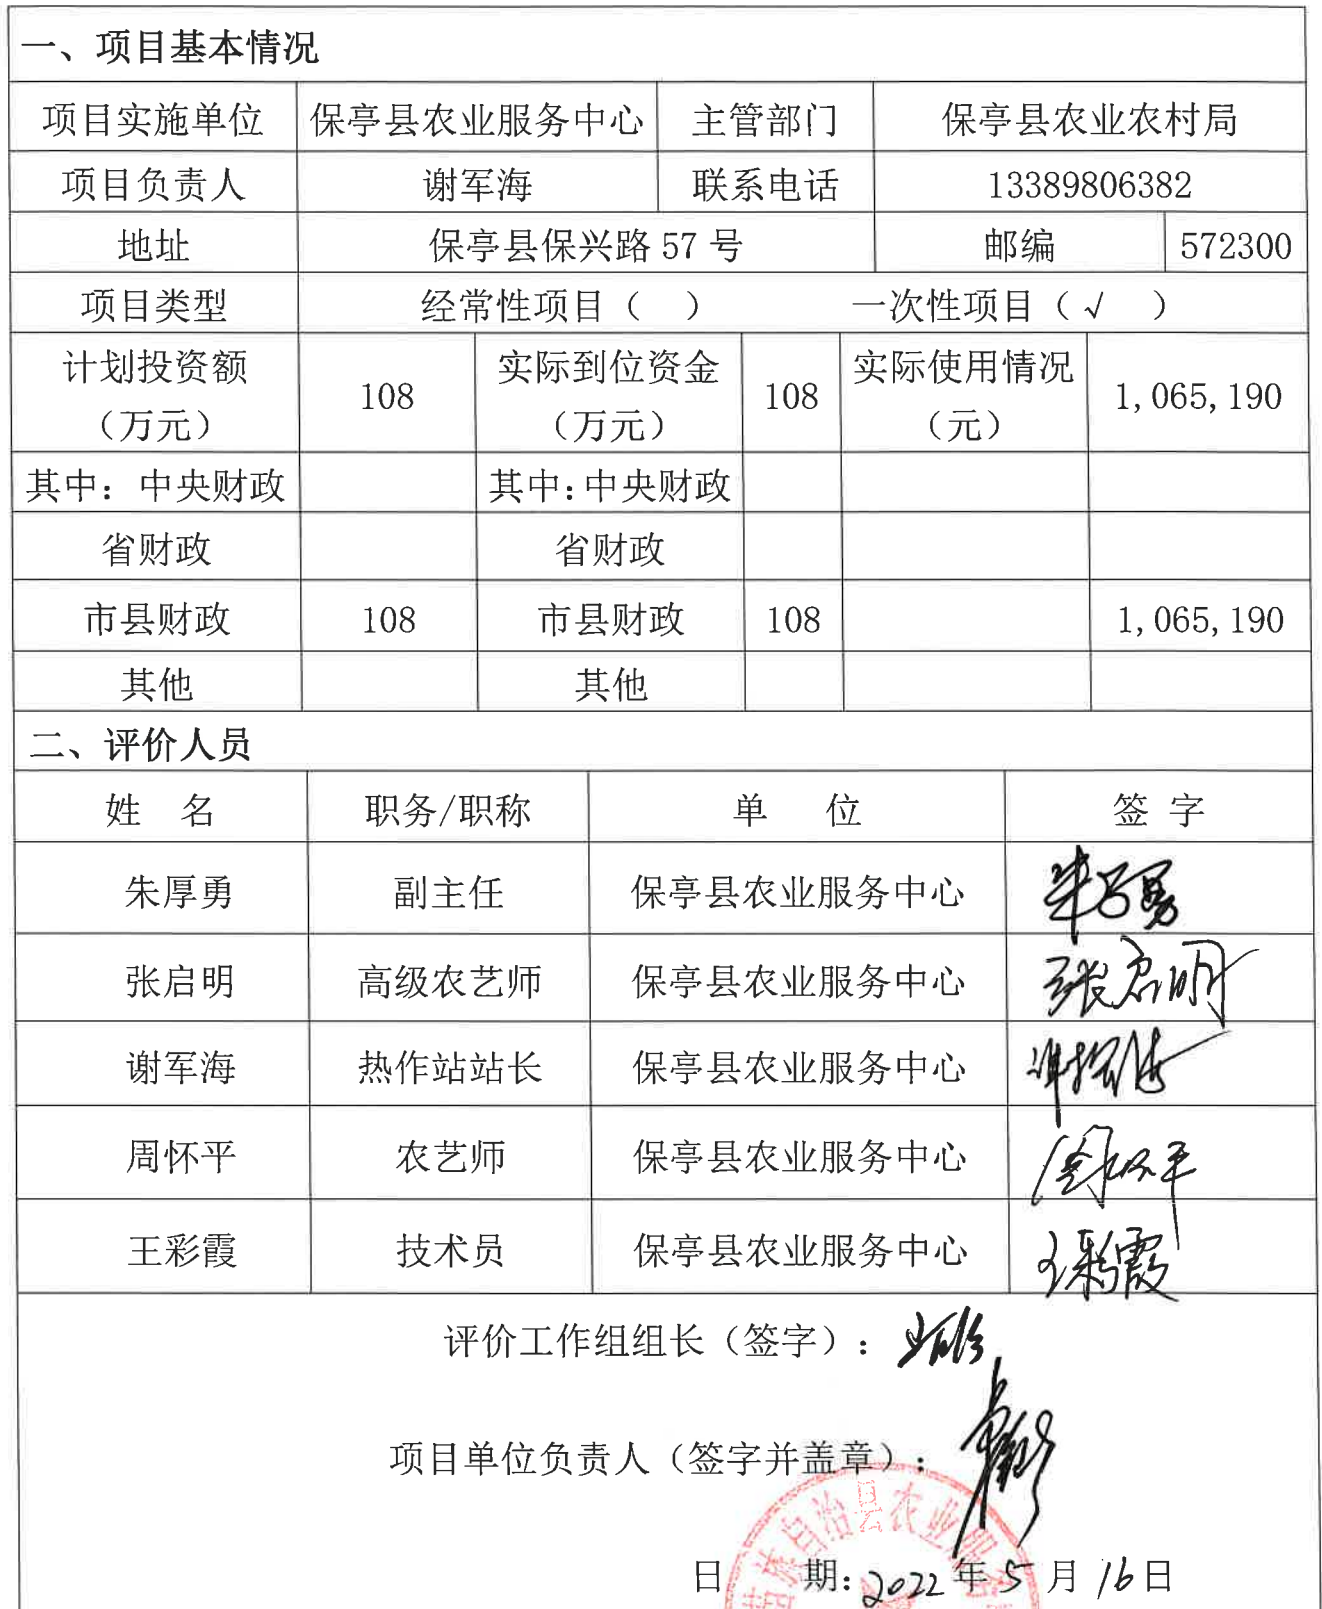 一、项目基本情况
项目实施单位 保亭县农业服务中心 主管部门 保亭县农业农村局
项目负责人 谢军海 联系电话 13389806382
地址 保亭县保兴路 57 号 邮编 572300
项目类型 经常性项目（ ） 一次性项目（√ ）
计划投资额（万元） 108 实际到位资金（万元） 108 实际使用情况（元） 1,065,190
其中：中央财政 其中:中央财政
省财政 省财政
市县财政 108 市县财政 108 1,065,190
其他 其他
二、评价人员
姓 名 职务/职称 单 位 签 字
朱厚勇 副主任 保亭县农业服务中心 朱厚勇
张启明 高级农艺师 保亭县农业服务中心 张启明
谢军海 热作站站长 保亭县农业服务中心 谢军海
周怀平 农艺师 保亭县农业服务中心 周怀平
王彩霞 技术员 保亭县农业服务中心 王彩霞
评价工作组组长（签字）：
项目单位负责人（签字并盖章）：
苗族自治县农业服务
日 期: 2022 年 5 月 16 日